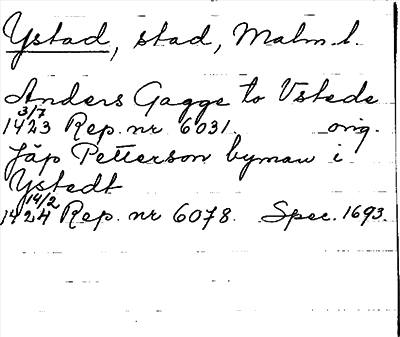 Ystad, stad, Malm. l.
Anders Gagge to Vstede
3/7
1423 Rep. nr 6031. orig.
Jäp Petterson byman i
Ystedt
14/2
1424 Rep. nr 6078. Spec. 1693.